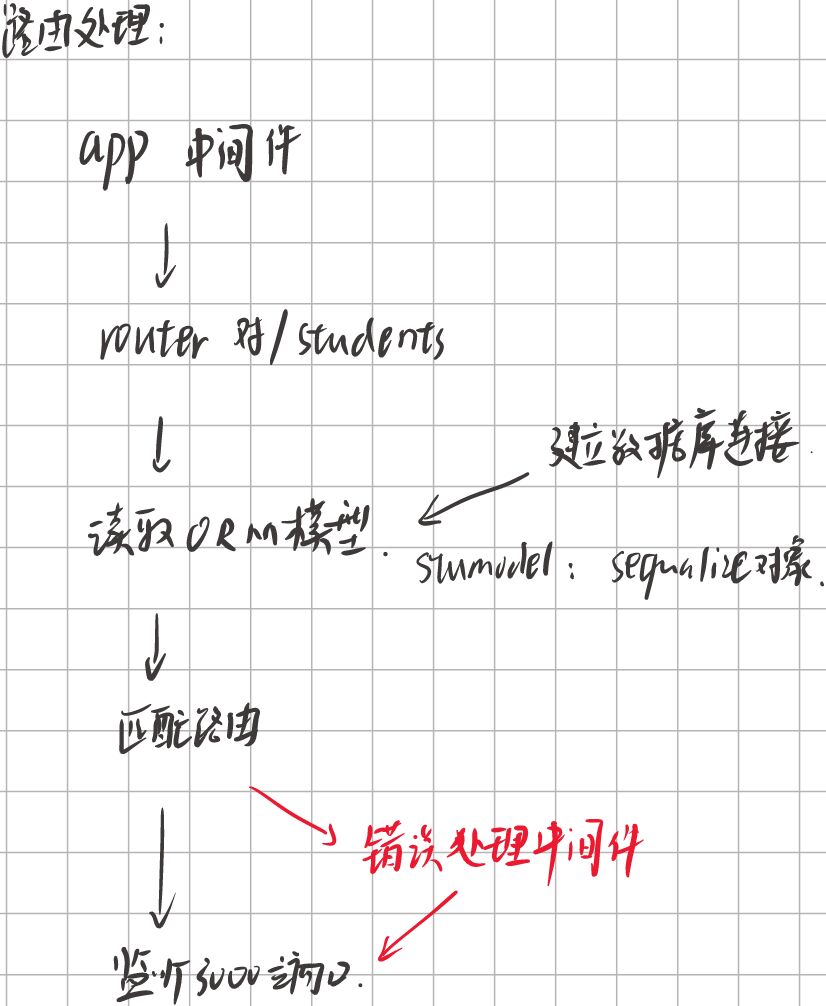 路由处理：
app 中间件
router 对/students
建立数据库连接.
读取ORM模型.
stumodel： sequalize对象.
匹配路由
错误处理中间件
监听3000端口.